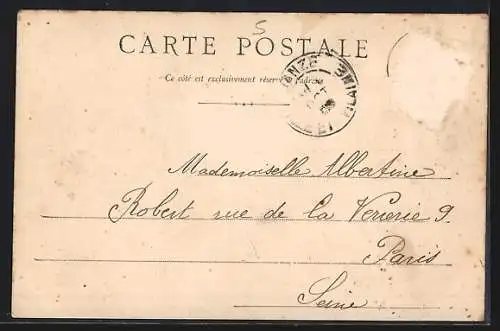 5
CARTE POSTALE
Ce côté est exclusivement réservé à l'adresse
OCT
Mademoiselle Albertine
Robert rue de la Verrerie 9.
Paris
Seine